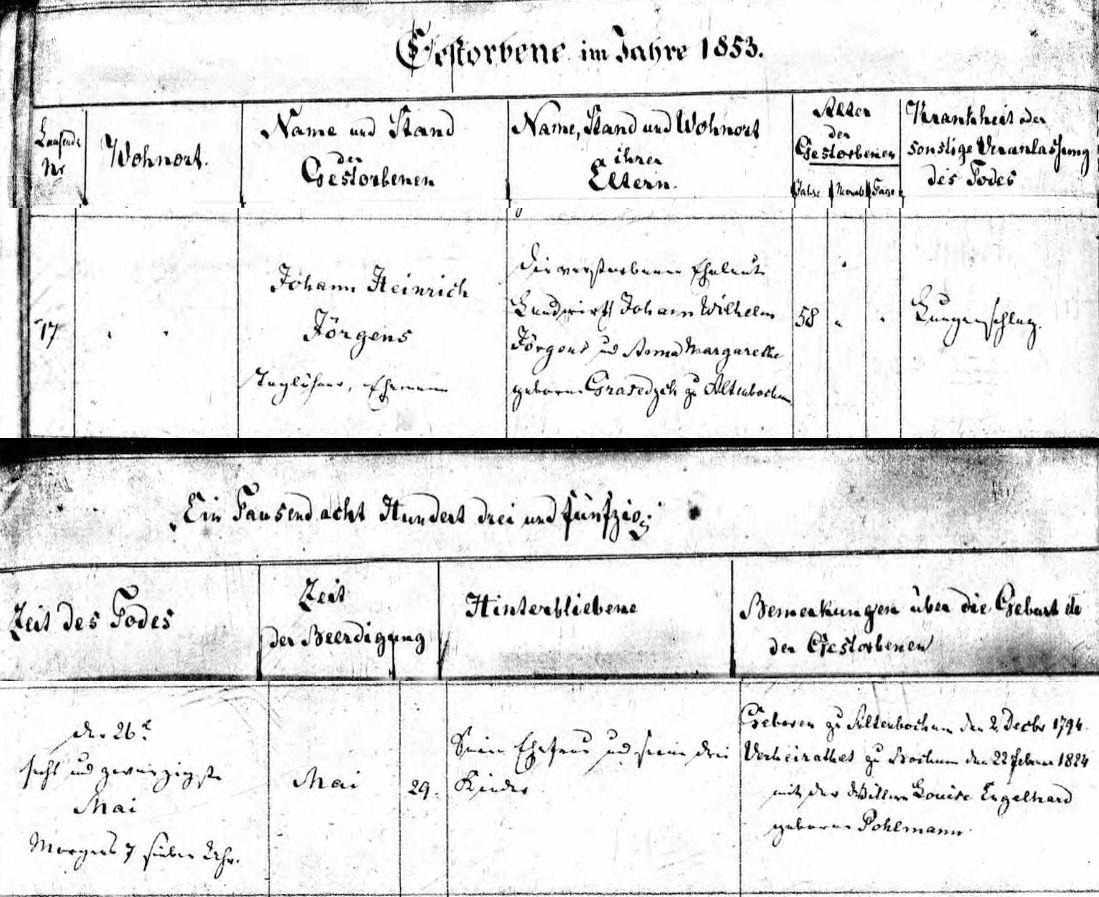 Gestorbene im Jahre 1853.
Laufende Nr
Wohnort.
Name und Stand
der
Gestorbenen
Name, Stand und Wohnort
ihrer
Eltern.
Alter
der
Gestorbenen
Jahre Monat Tage
Krankheit oder
sonstige Veranlassung
des Todes
17
Johann Heinrich
Jörgens
Taglöhner, Ehemann
die verstorbenen Eheleute
Landwirth Johann Wilhelm
Jörgens und Anna Margarethe
geborne zu Altenbochum
58
Lungenschlag.
Ein Tausend acht Hundert drei und fünfzig
Zeit des Todes
Zeit
der Beerdigung
Hinterbliebene
Bemerkungen über die Geburt etc
der Gestorbenen
den 26t
sechs und zwanzigste
Mai
Morgens 7 sieben Uhr.
Mai
29.
Seine Ehefrau und seine drei
Kinder
Geboren zu Altenbochum den 2. Decbr 1794.
Verheirathet zu Bochum den 22 Februar 1824
mit der Wittwe Louise Engelhard
geborne Pohlmann.